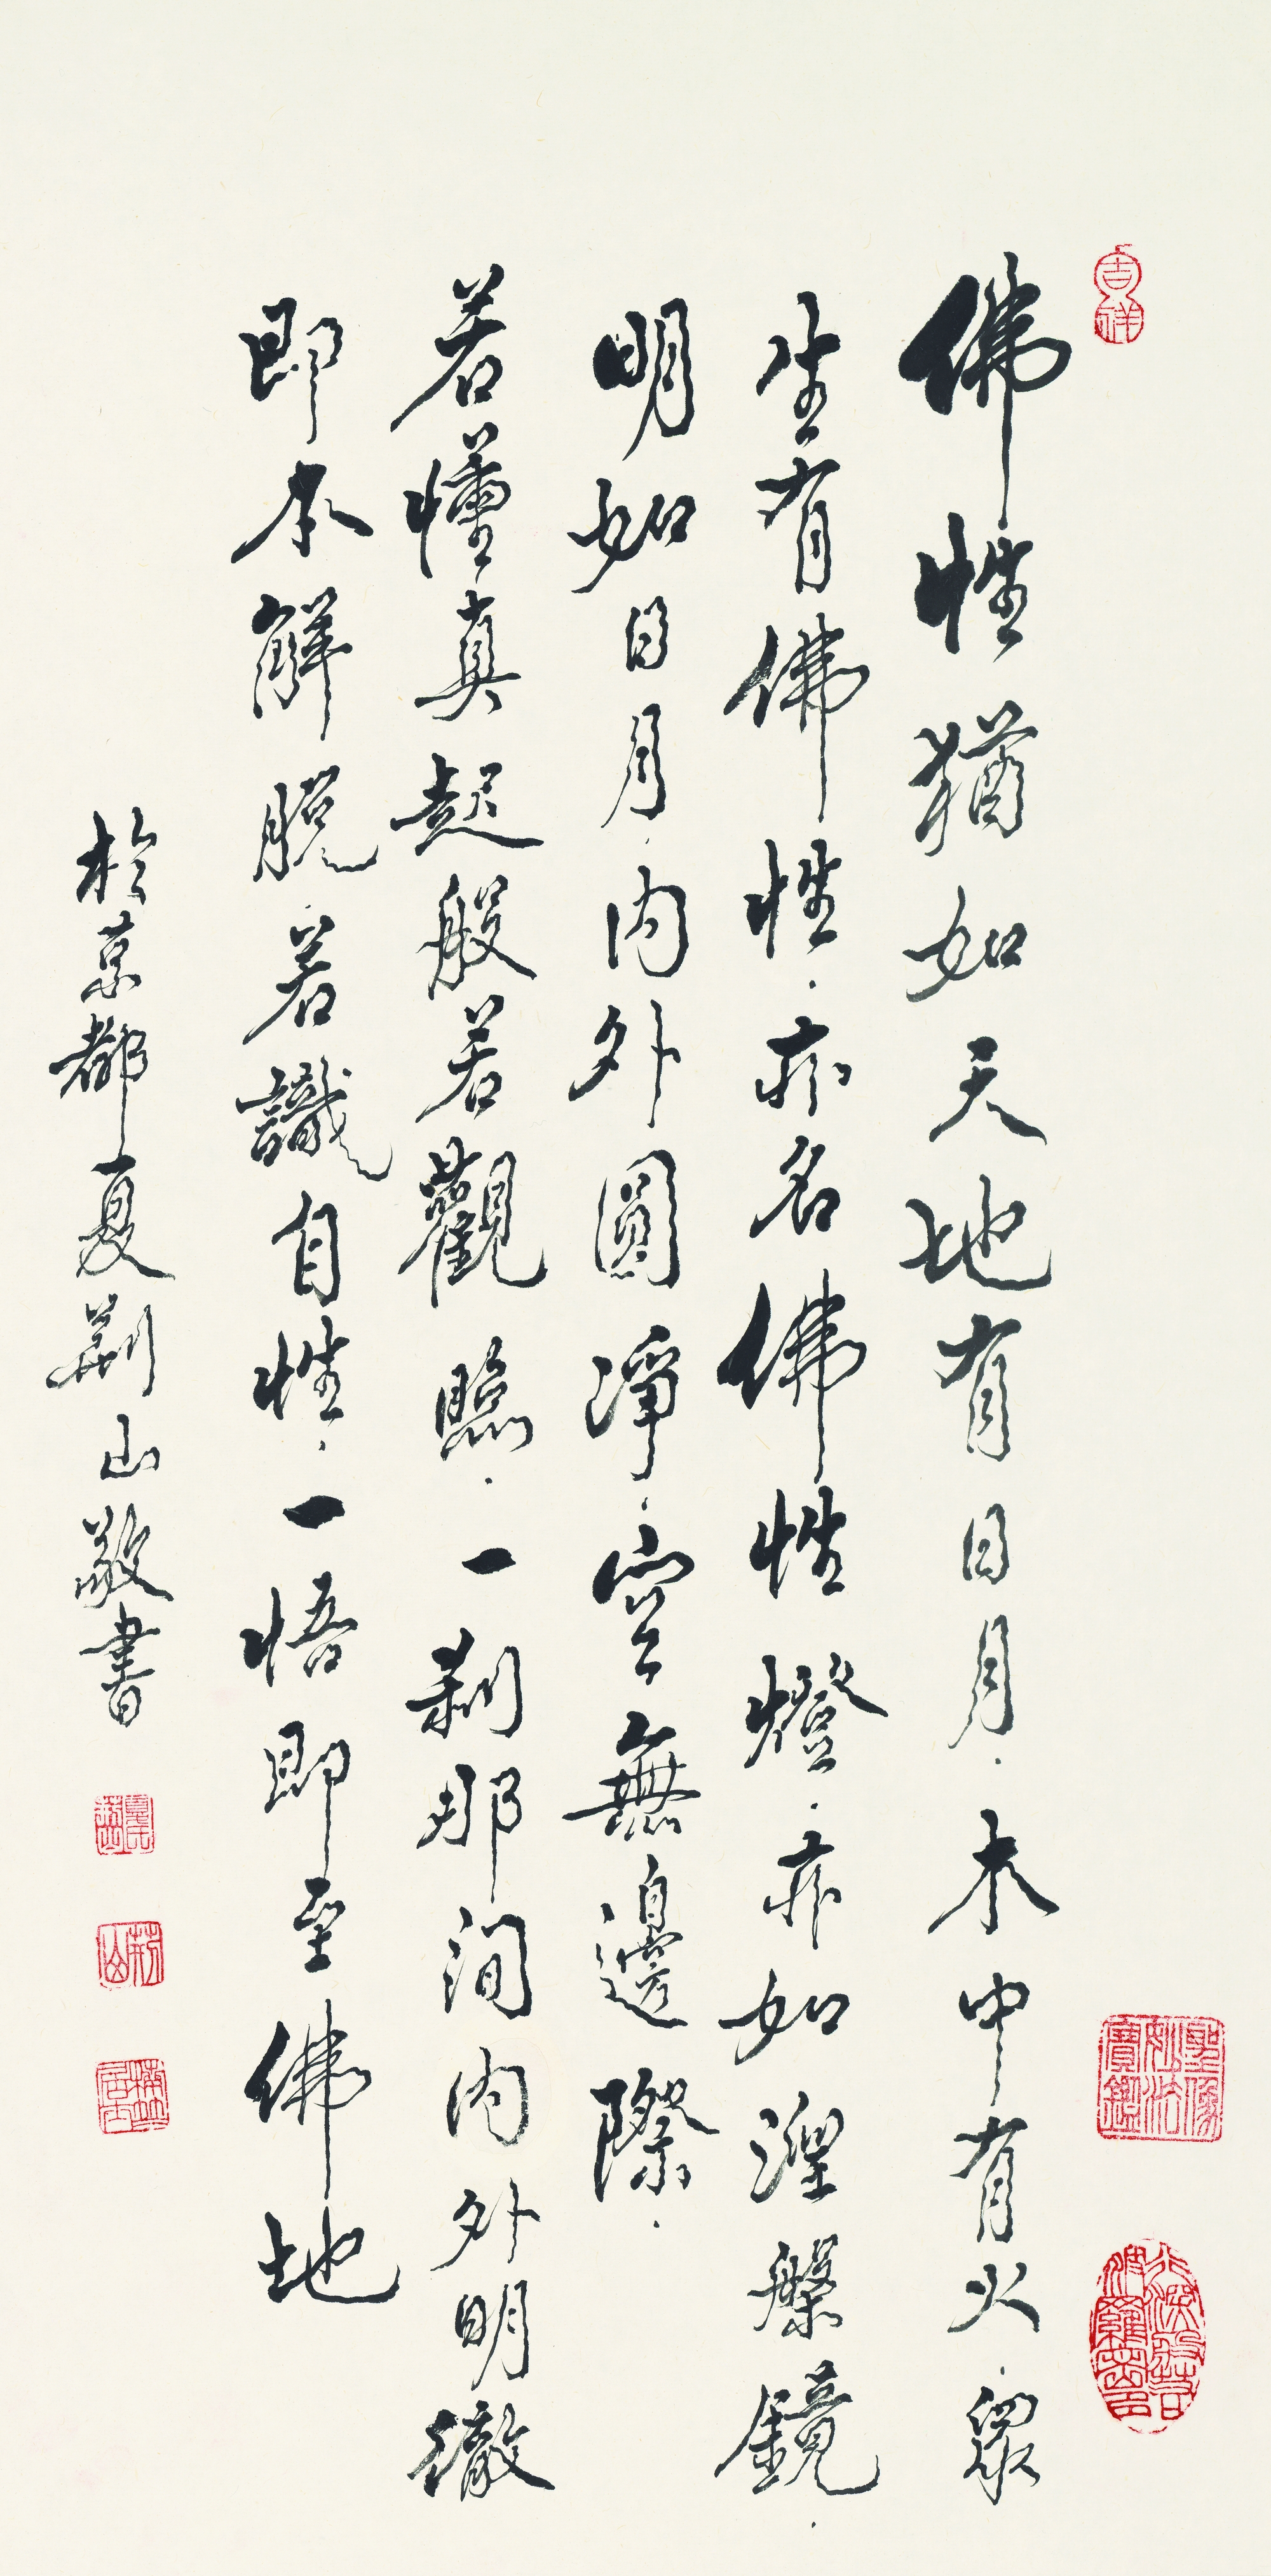 佛性猶如天地有日月.木中有火.眾
生有佛性.亦名佛性燈.亦如涅槃鏡.
明如日月.内外圓淨.空無邊際.
若懂真起般若觀照.一刹那間内外明徹
即本解脱.若識自性.一悟即至佛地
於京都夏荆山敬書
吉祥
聖像妙法寶鑑
荆山